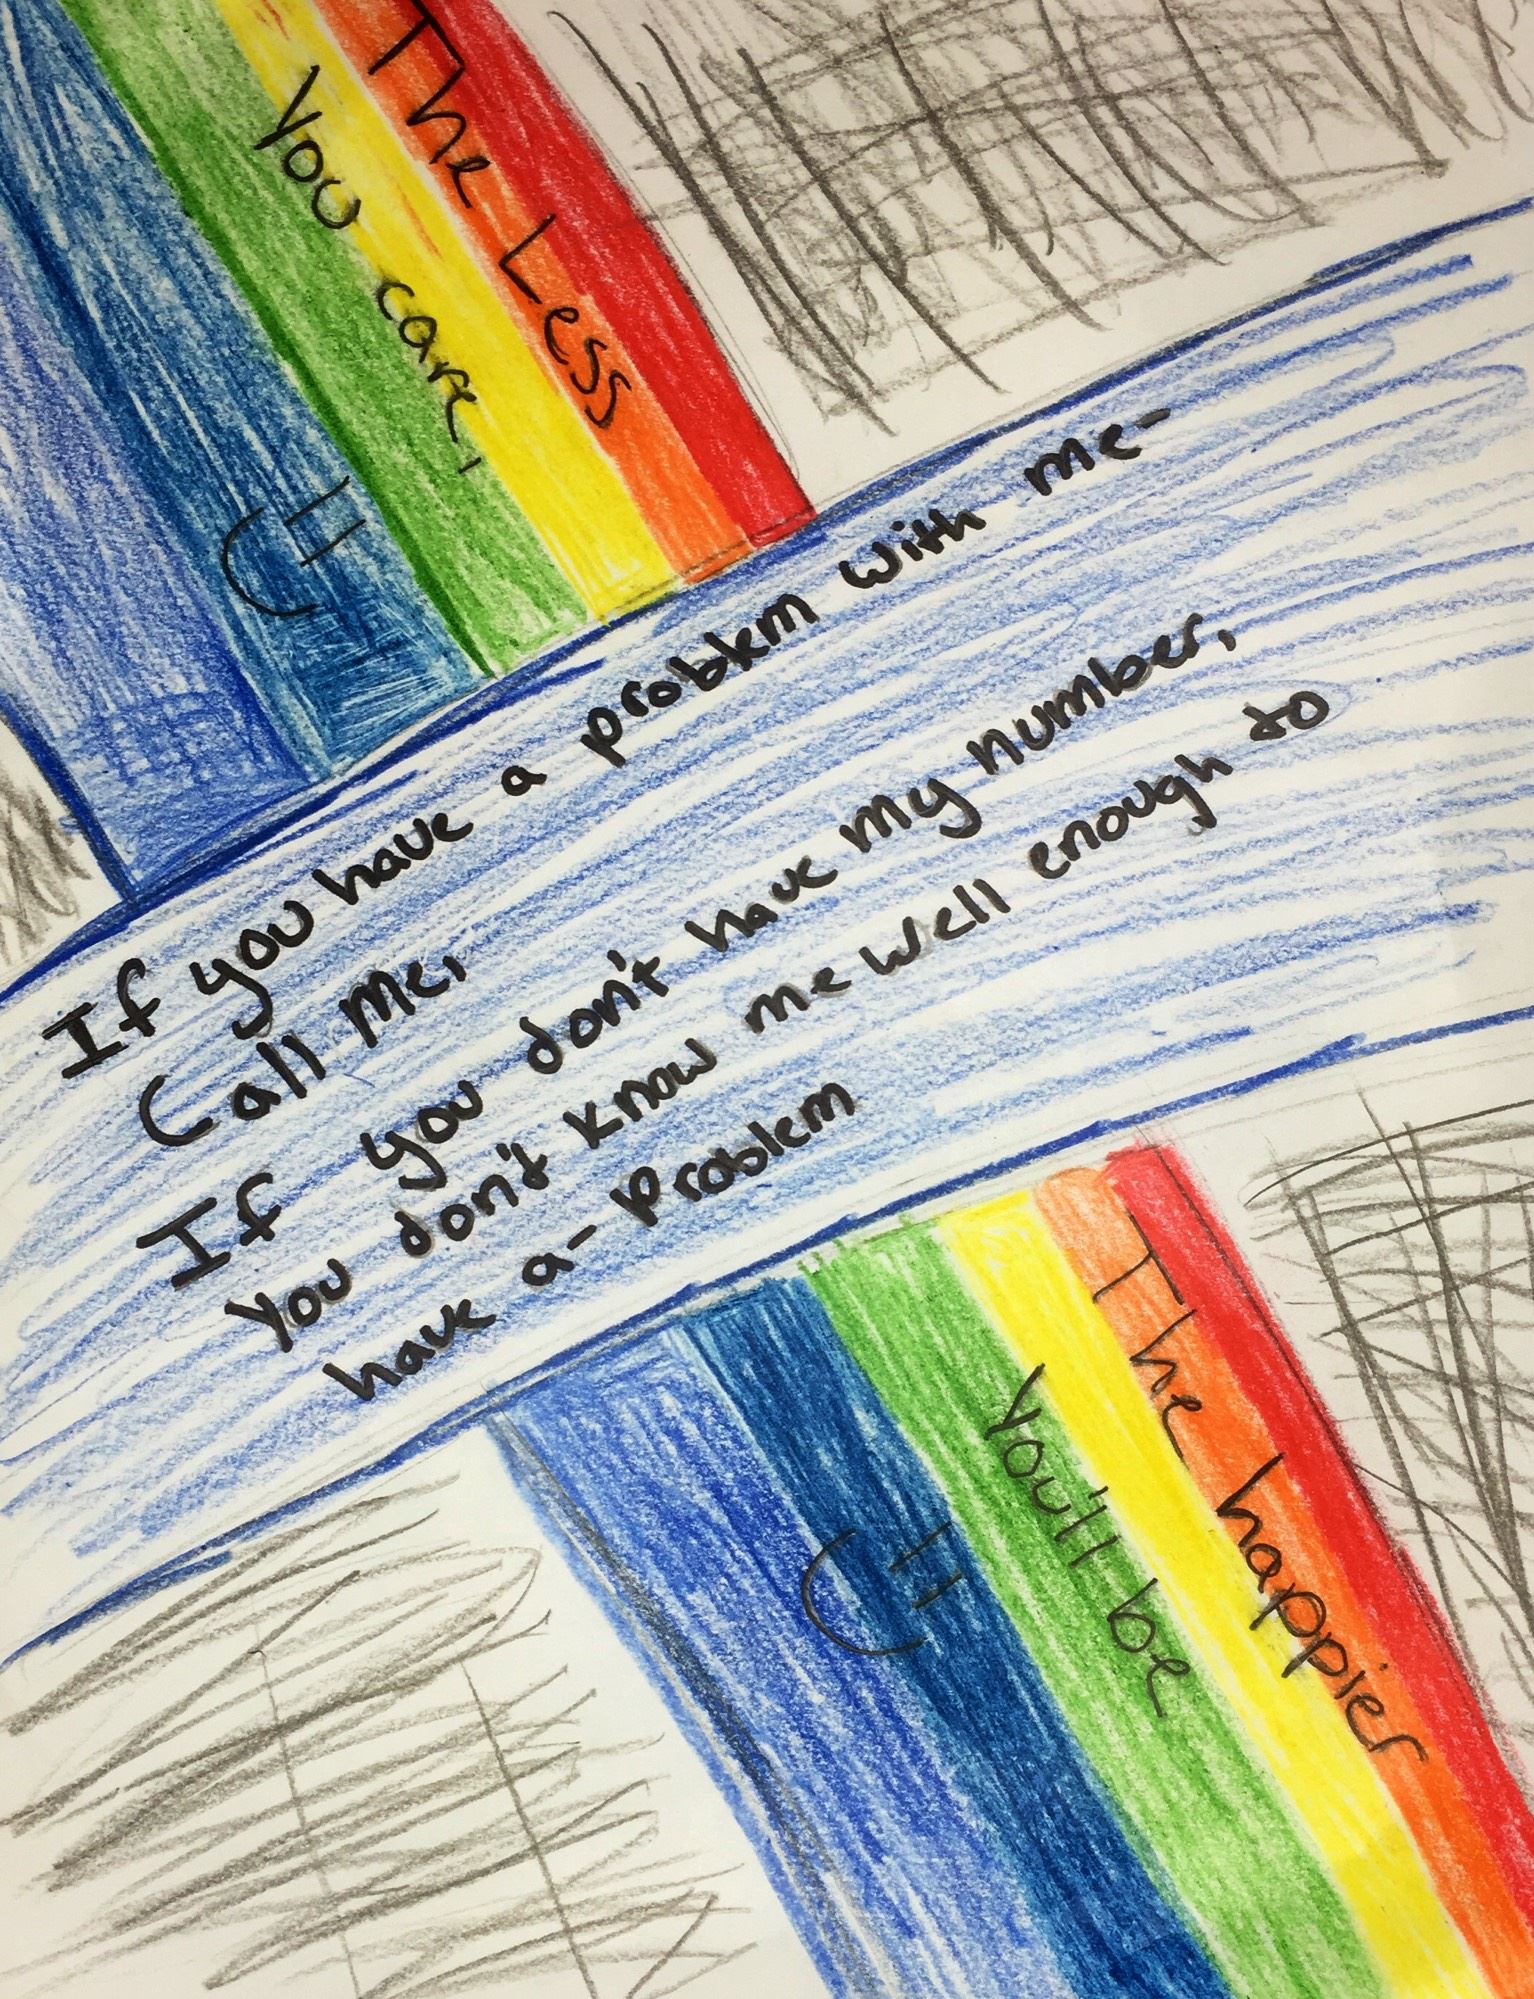 The Less
you care,
=)
If you have a problem with me-
Call me,
If you don't have my number,
You don't know me well enough to
have a- problem
The happier
You'll be
=)